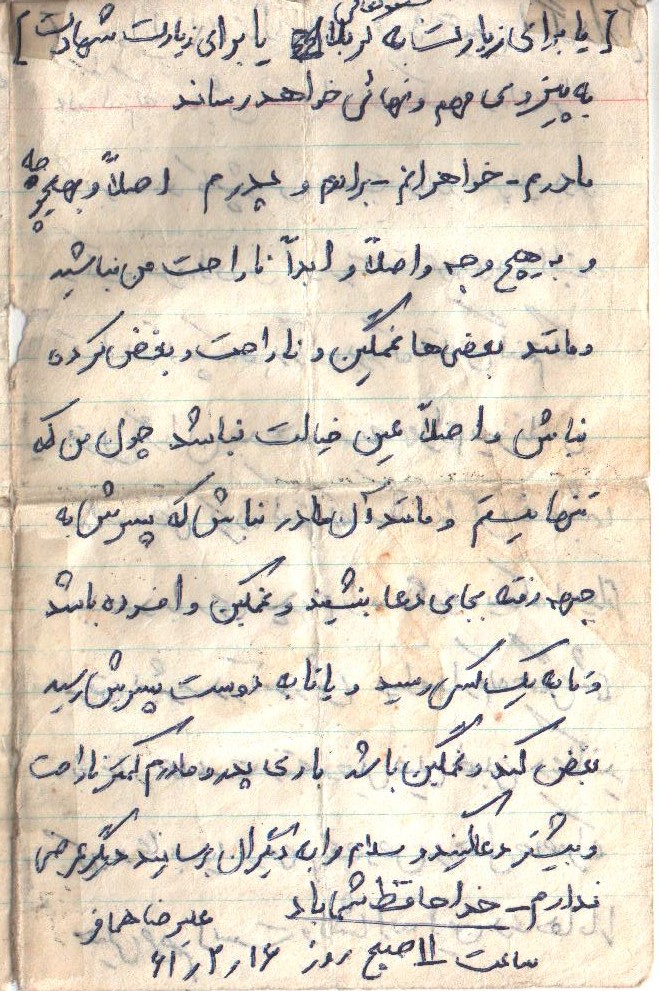 [یا برای زیارت به کربلا یا برای زیارت شهادت]
به پیروزی مهم و نهائی خواهد رساند
مادرم - خواهرانم - برادرم و پدرم اصلاً و بهیچ
و به هیچ وجه و اصلاً و ابداً ناراحت من نباشید
و مانند بعضی‌ها غمگین و ناراحت و بغض کرده
نباش و اصلاً عین خیالت نباشد چون من که
تنها نیستم و مانند آن مادر نباش که پسرش به
جبهه رفته بجای دعا بنشیند و غمگین و افسرده باشد
و تا به یک کسی رسید و یا تا به دوست پسرش رسید
بغض کند و غمگین باشد باری پدر و مادرم کمتر ناراحت
و بیشتر دعا کنید و سلام مرا به دیگران برسانید دیگر عرضی
ندارم - خدا حافظ شما باد علیرضا هما فر
ساعت ۱۱ صبح روز ۶۱٫۲٫۱۶